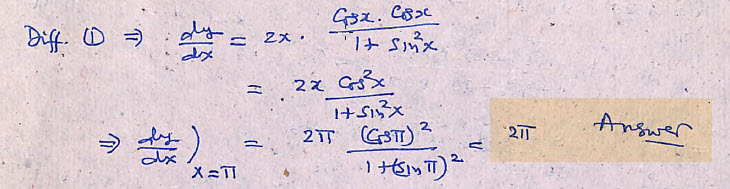 Diff. ① ⇒ dy/dx = 2x . Cosx. Cosx / 1 + sin²x
= 2x Cos²x / 1+sin²x
⇒ dy/dx ) x=π = 2π (Cosπ)² / 1+(sinπ)² = 2π Answer